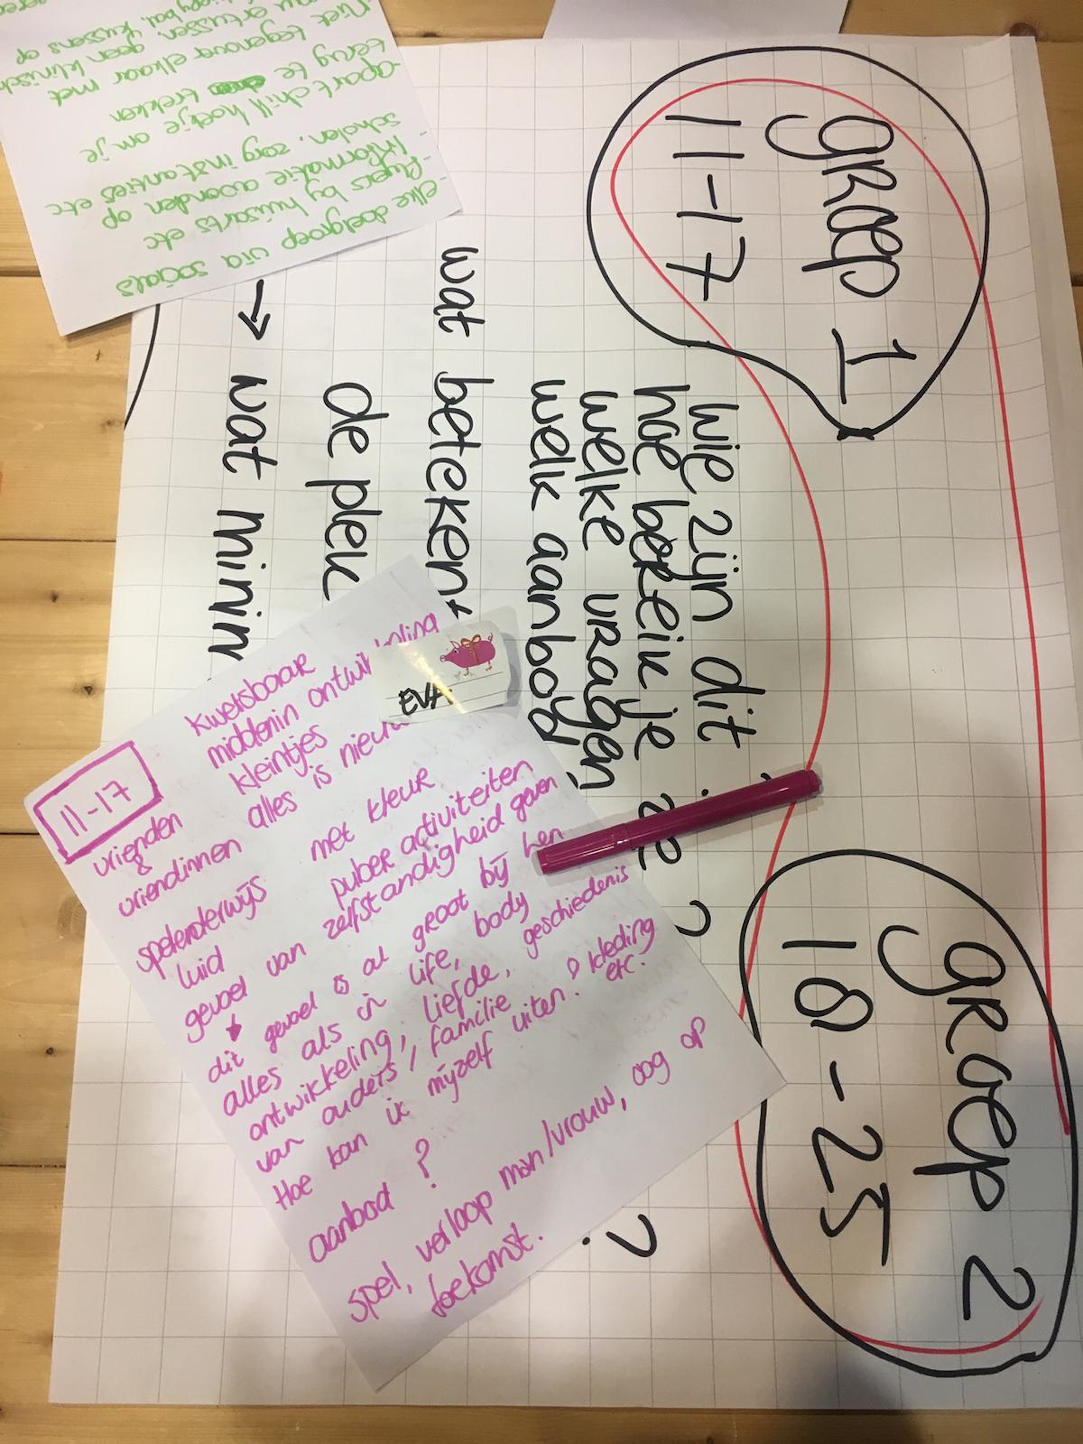 groep 1
11-17
groep 2
18-25
wie zijn dit
hoe bereik je ze ?
welke vragen
welk aanbod
wat beteken
de plek
?
→ wat minim
elke doelgroep via socials
- flyers bij huisarts etc
- Informatie avonden op
scholen, zorg instanties etc
- apart chill hoekje om je
terug te trekken
niet tegenover elkaar met
kussens op
EVA
11-17
kwetsbaar
middenin ontwikkeling
kleintjes
alles is nieuw
vrienden
&
vriendinnen
met kleur
spelenderwijs
puber activiteiten
luid
gevoel van zelfstandigheid geven
dit gevoel is al groot bij hen
alles als in life, body
ontwikkeling, liefde, geschiedenis
van ouders / familie
Hoe kan ik mijzelf uiten? kleding
etc.
aanbod ?
spel, verloop man/vrouw, oog op
toekomst.